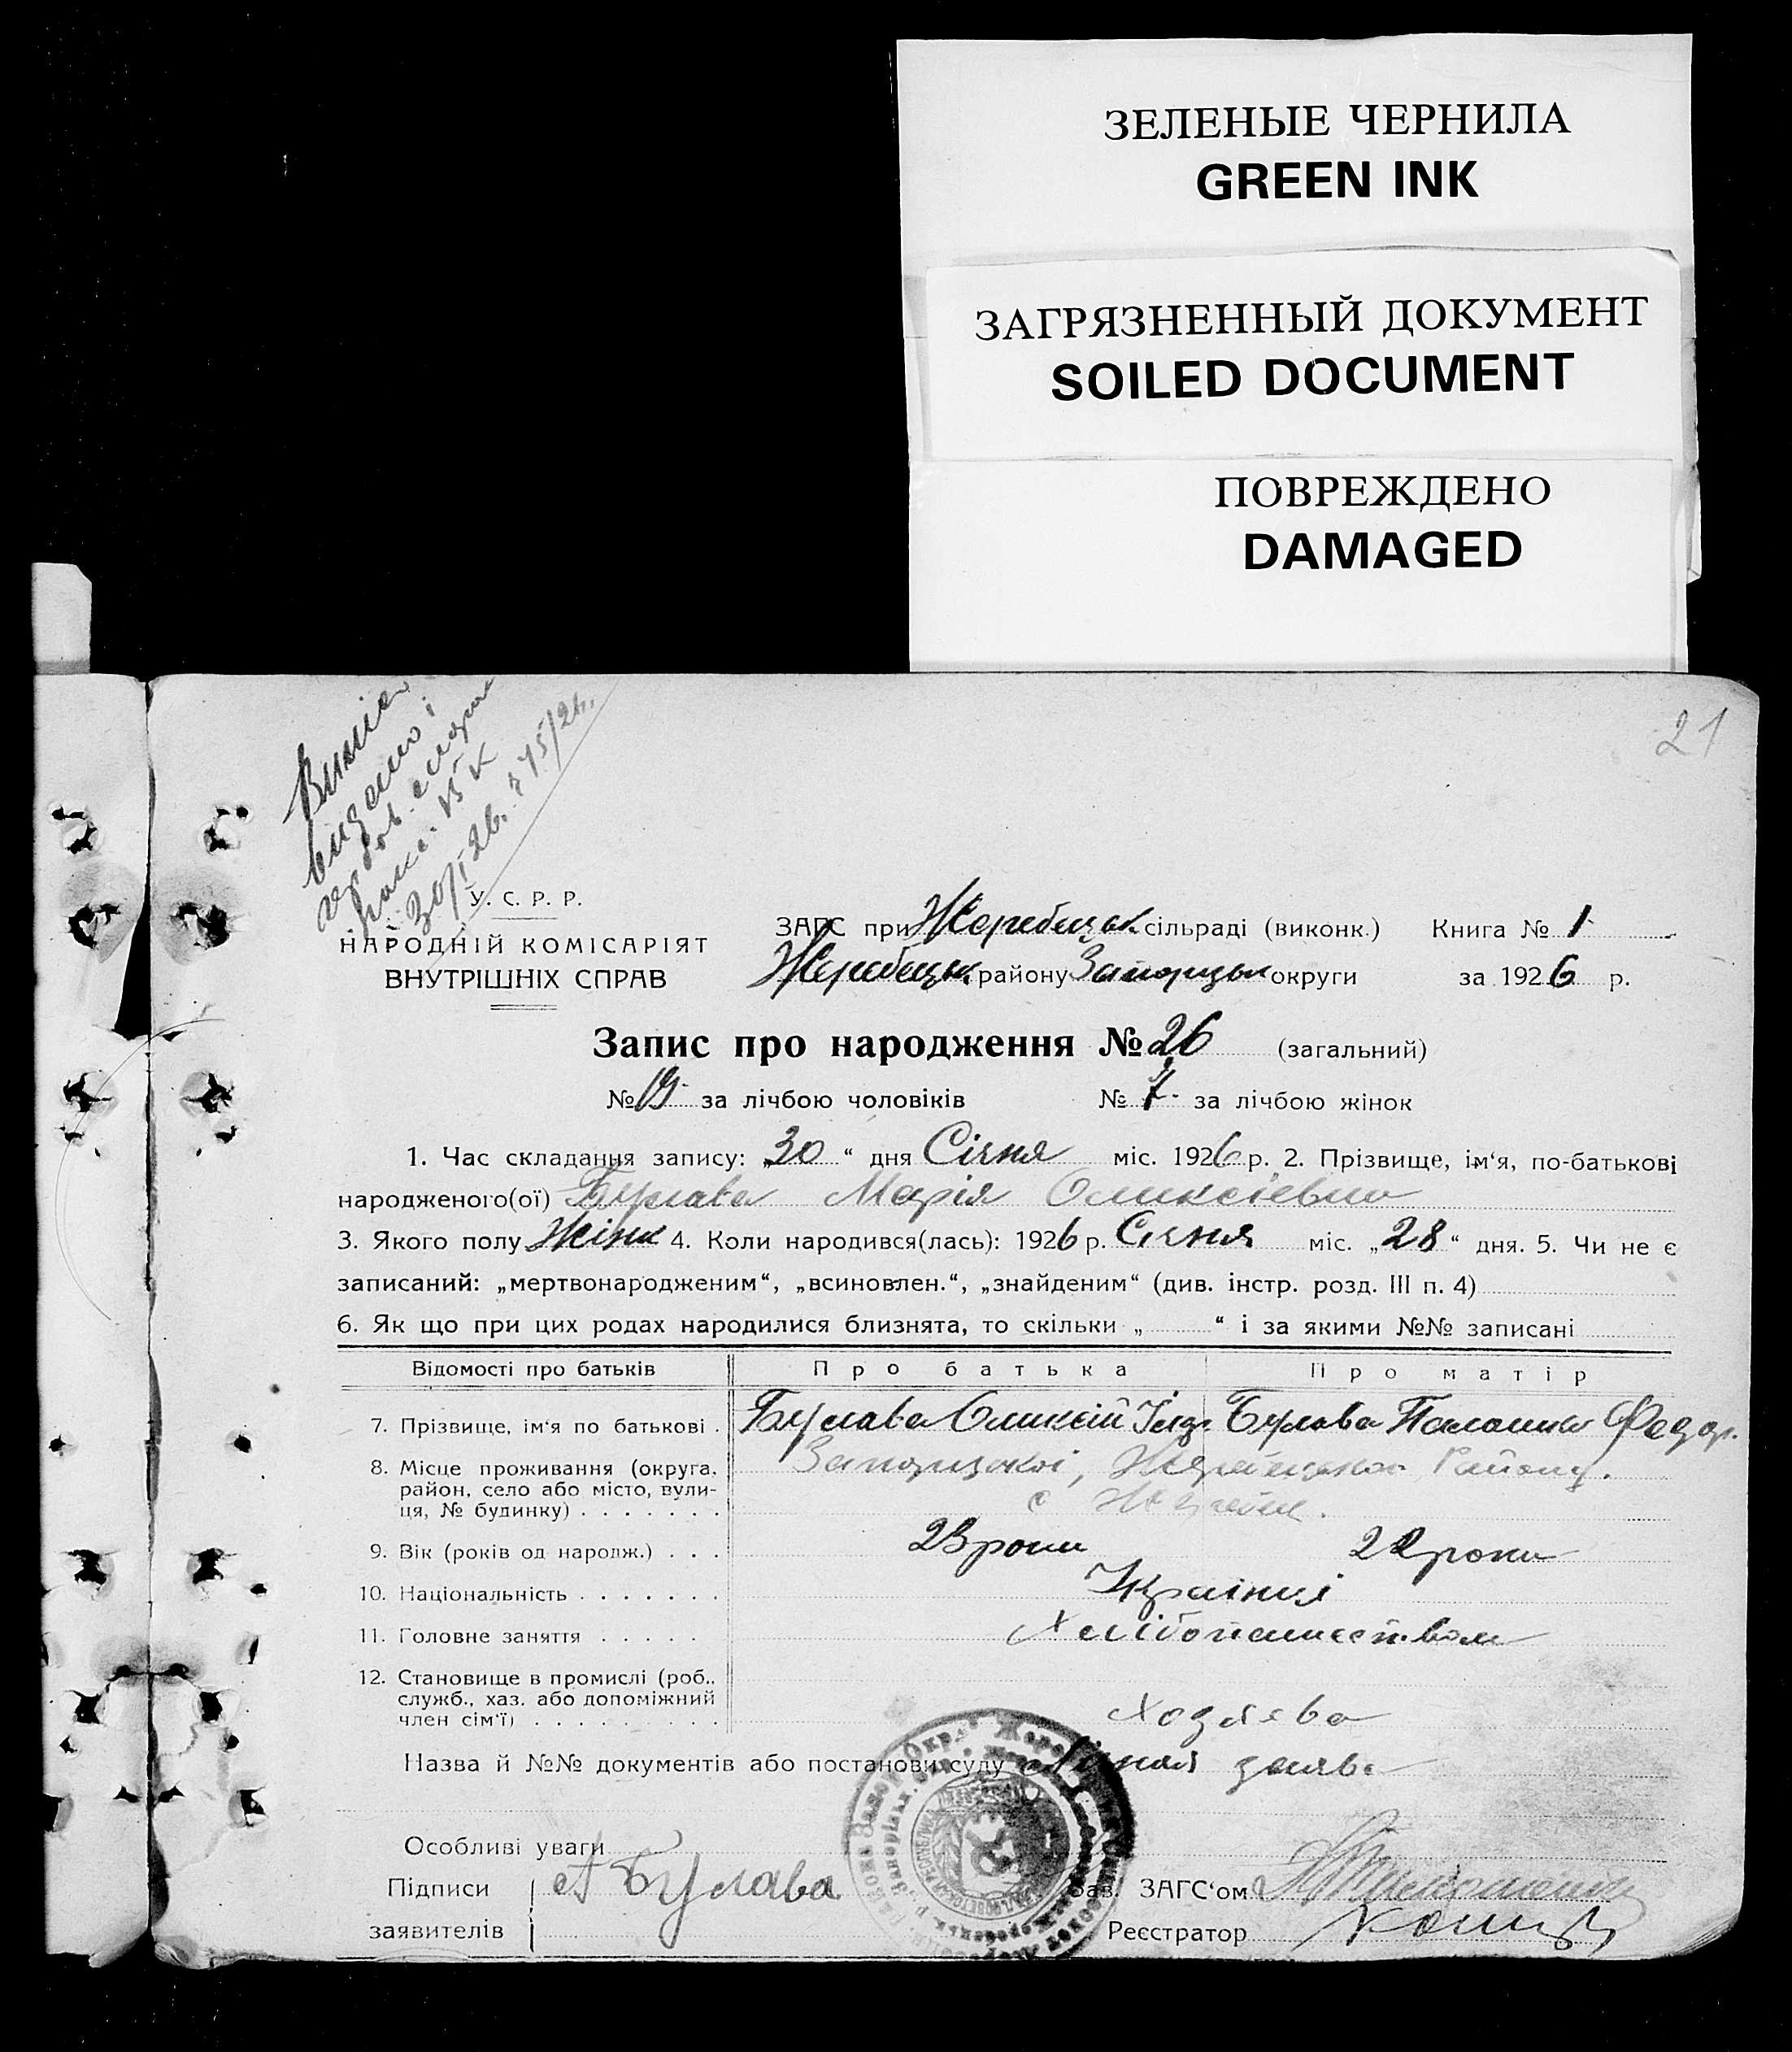 ЗЕЛЕНЫЕ ЧЕРНИЛА
GREEN INK
ЗАГРЯЗНЕННЫЙ ДОКУМЕНТ
SOILED DOCUMENT
ПОВРЕЖДЕНО
DAMAGED
21
видано і
30/I 26.
У. С. Р. Р.
НАРОДНІЙ КОМІСАРІЯТ
ВНУТРІШНІХ СПРАВ
ЗАГС при Жеребецьк сільраді (виконк.) Книга № 1
Жеребецьк району Запорізьк округи за 1926 р.
Запис про народження № 26 (загальний)
№ 19 за лічбою чоловіків № 7. за лічбою жінок
1. Час складання запису: „30“ дня Січня міс. 1926 р. 2. Прізвище, ім‘я, по-батькові
народженого(ої) Булава Марія Олексієвна
3. Якого полу Жінк 4. Коли народився(лась): 1926 р. Січня міс. „28“ дня. 5. Чи не є
записаний: „мертвонародженим“, „всиновлен.“, „знайденим“ (див. інстр. розд. III п. 4)
6. Як що при цих родах народилися близнята, то скільки „ “ і за якими №№ записані
Відомості про батьків Про батька Про матір
7. Прізвище, ім‘я по батькові . Булава Олексій Булава Палашка Федор.
8. Місце проживання (округа, район, село або місто, вулиця, № будинку) . . . . . . .
Району.
с Жеребец.
9. Вік (років од народж.) . . . 23 роки 22 роки
10. Національність . . . . . . . Українці
11. Головне заняття . . . . .
12. Становище в промислі (роб., служб., хаз. або допоміжний член сім‘ї) . . . . . . . . . Хозяєва
Назва й №№ документів або постанови суду заява
Особливі уваги
Підписи А Булава Зав. ЗАГС‘ом
заявителів Реєстратор